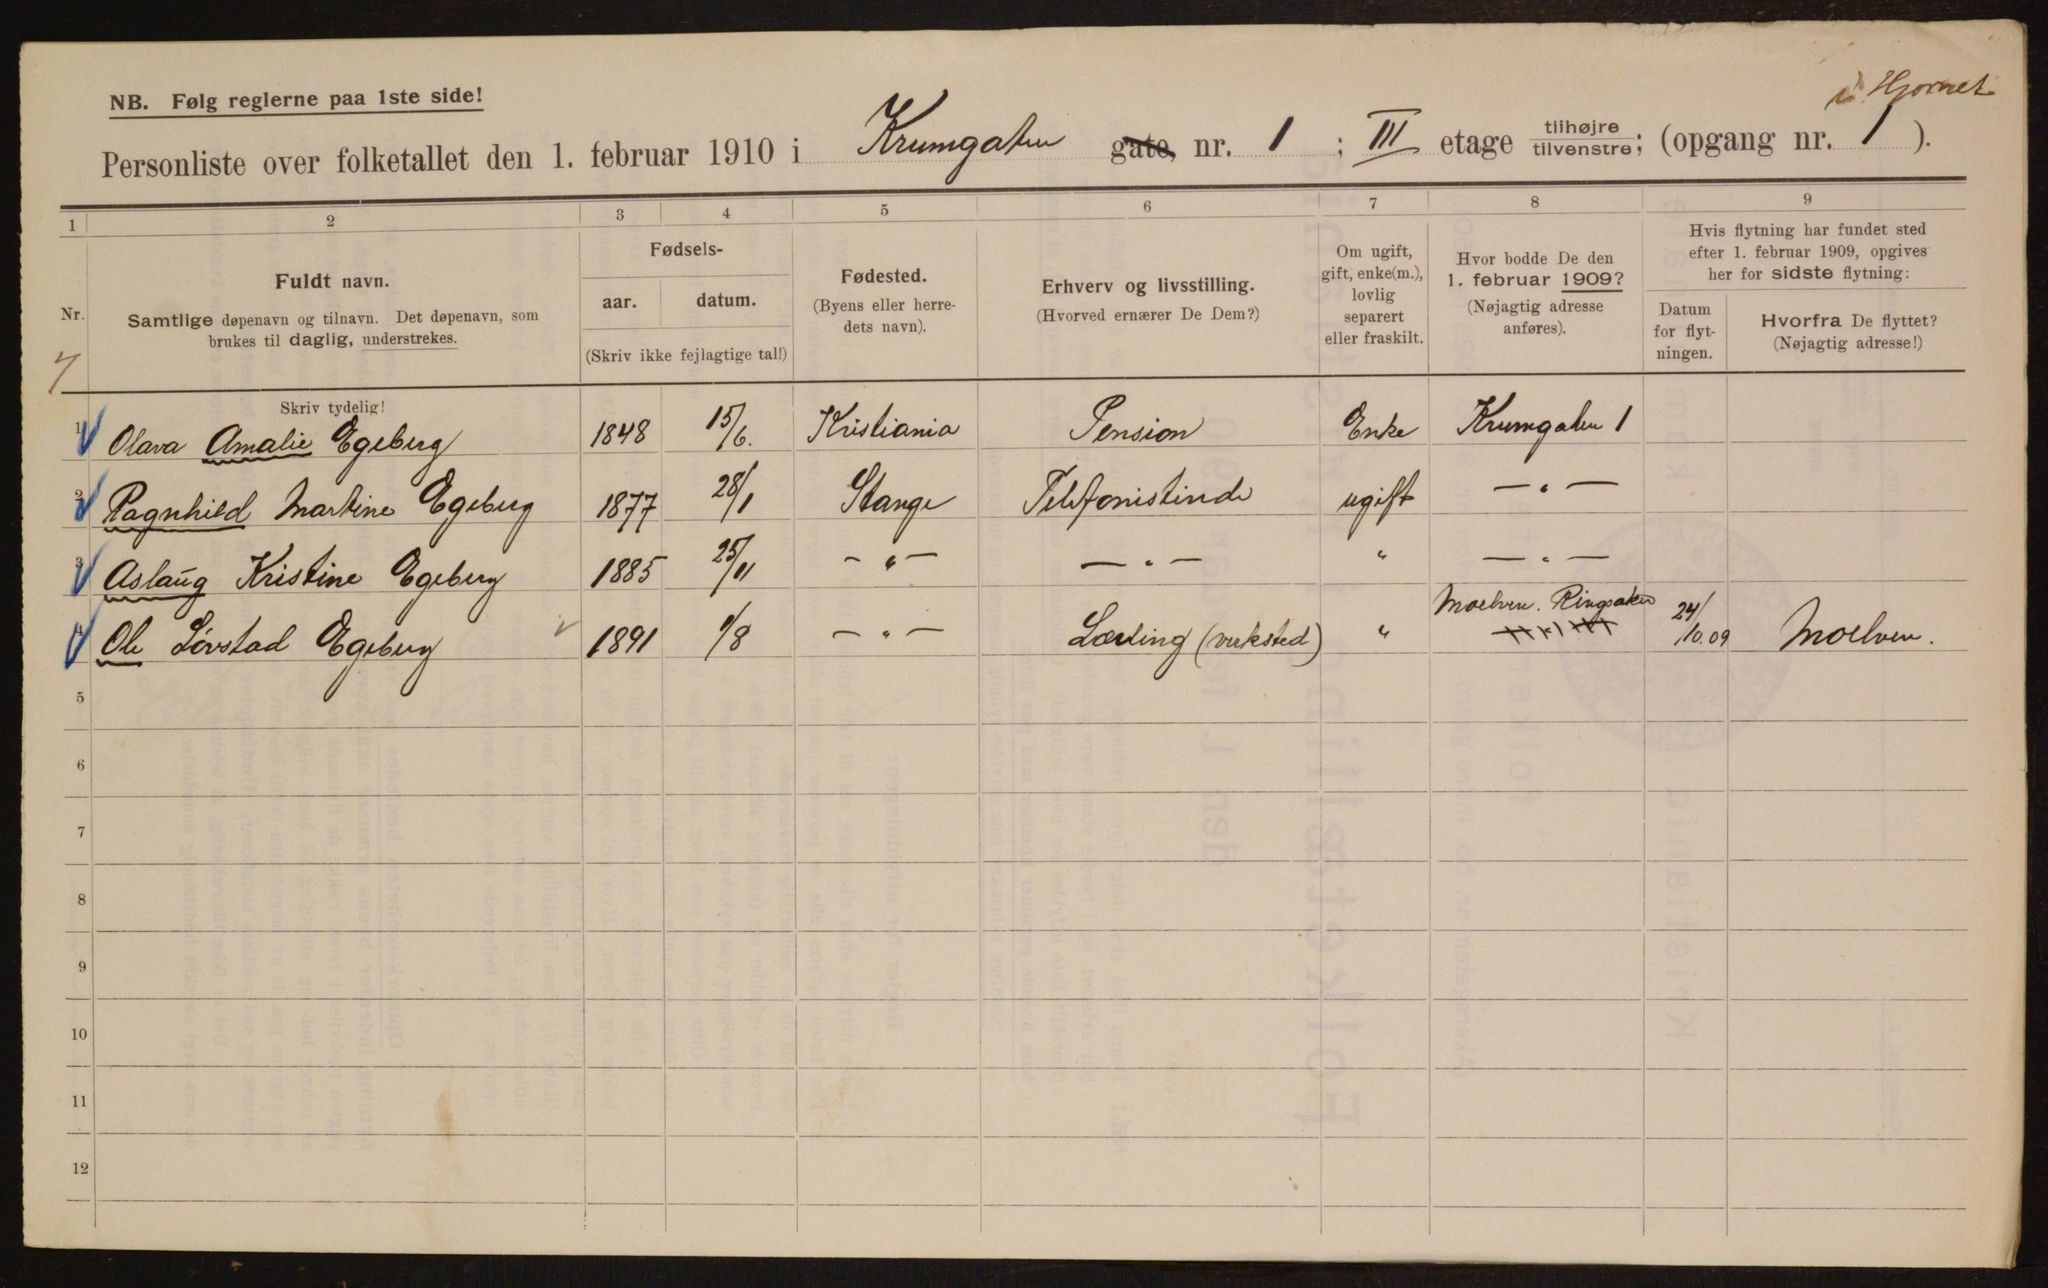 i Hjørnet
NB. Følg reglerne paa 1ste side!
Personliste over folketallet den 1. februar 1910 i Krumgaten gate nr. 1 ; III etage tilhøjre tilvenstre; (opgang nr. 1 ).
1 2 3 4 5 6 7 8 9
Nr.
Fuldt navn.
Samtlige døpenavn og tilnavn. Det døpenavn, som
brukes til daglig, understrekes.
Skriv tydelig!
Fødsels-
aar. datum.
(Skriv ikke fejlagtige tal!)
Fødested.
(Byens eller herre-
dets navn).
Erhverv og livsstilling.
(Hvorved ernærer De Dem?)
Om ugift,
gift, enke(m.),
lovlig
separert
eller fraskilt.
Hvor bodde De den
1. februar 1909?
(Nøjagtig adresse
anføres).
Hvis flytning har fundet sted
efter 1. februar 1909, opgives
her for sidste flytning:
Datum
for flyt-
ningen.
Hvorfra De flyttet?
(Nøjagtig adresse!)
1 Olava Amalie Egeberg 1848 15/6. Kristiania Pension Enke Krumgaten 1
2 Ragnhild Martine Egeberg 1877 28/1 Stange Telefonistinde ugift — " —
3 Aslaug Kristine Egeberg 1885 25/11 — " — — " — " — " —
4 Ole Lövstad Egeberg 1891 1/8 — " — Lærling (verksted) " Moelven. Ringsaker 24/10.09 Moelven.
5
6
7
8
9
10
11
12